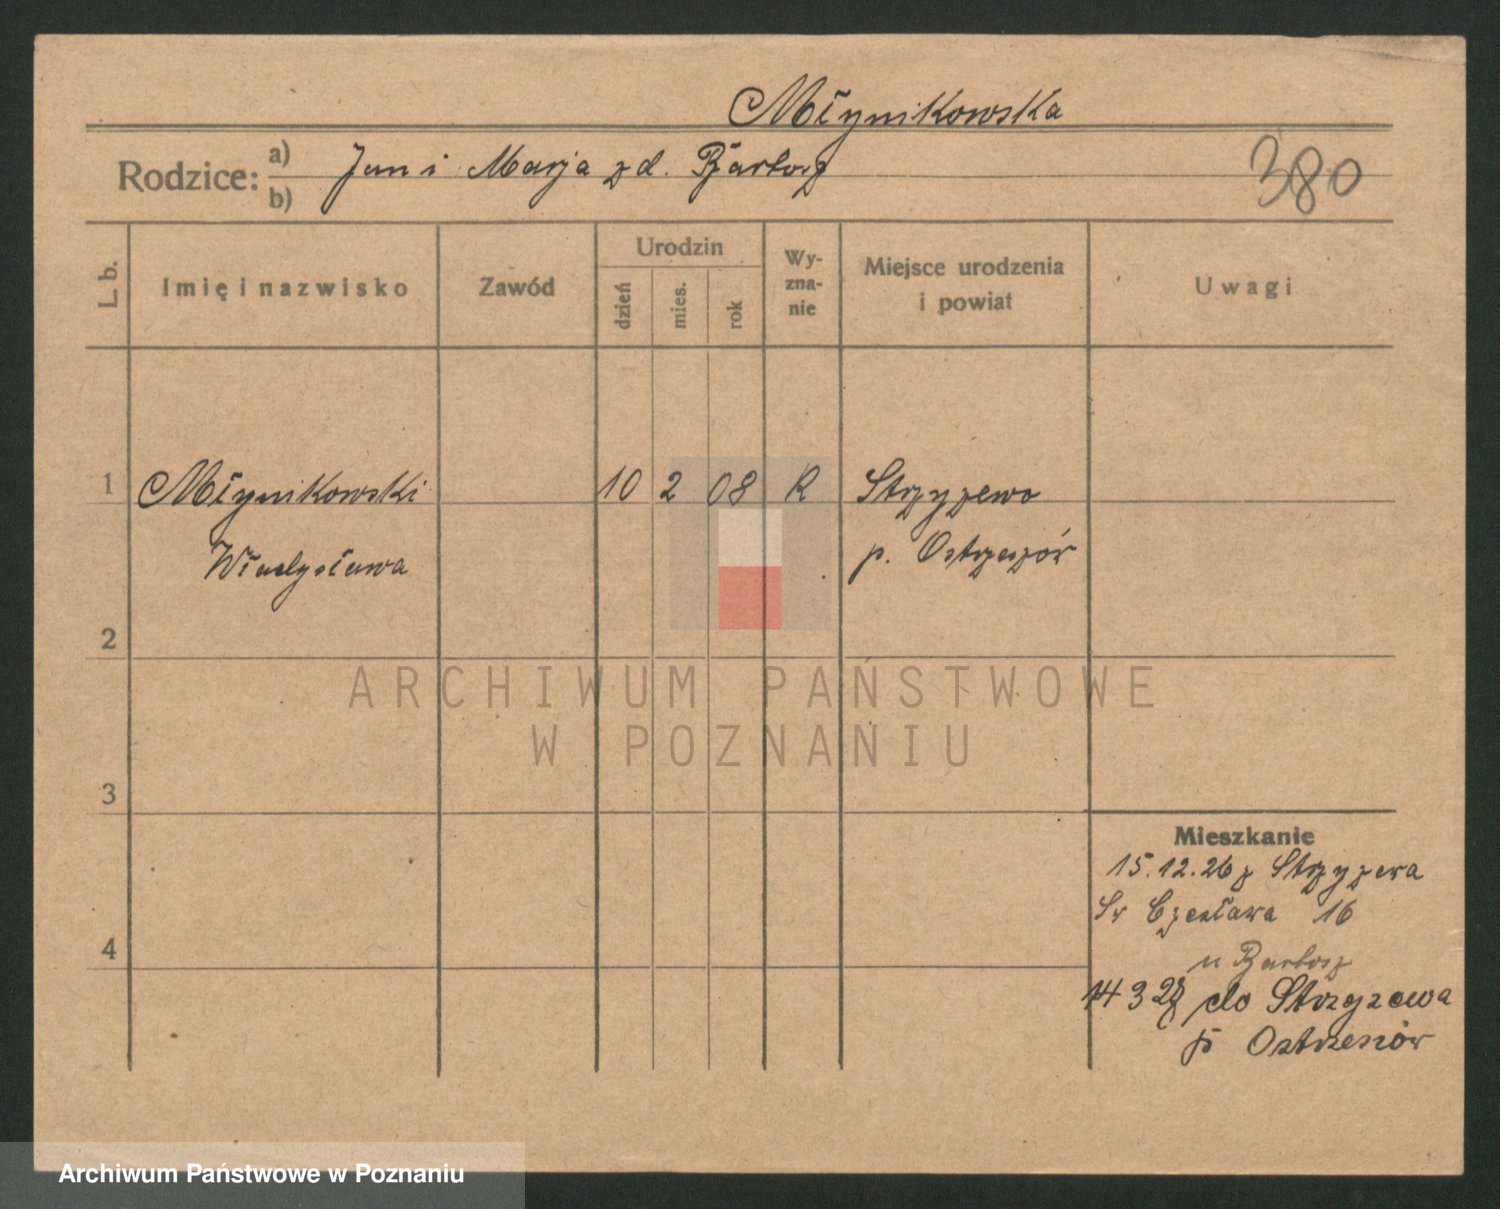 Młynikowska
Rodzice: a) Jan i Marja zd. Bartosz
b)
380
L. b. Imię i nazwisko Zawód Urodzin dzień mies. rok Wy-zna-nie Miejsce urodzenia i powiat Uwagi
1 Młynikowski 10 2 08 R Strzyżewo
Władysława p. Ostrzeszów
2
ARCHIWUM PAŃSTWOWE
W POZNANIU
3
Mieszkanie
15.12.26 z Strzyżewa
Św Czesława 16
4
u Bartosz
14 3 28 do Strzyzewa
p Ostrzeszów
Archiwum Państwowe w Poznaniu